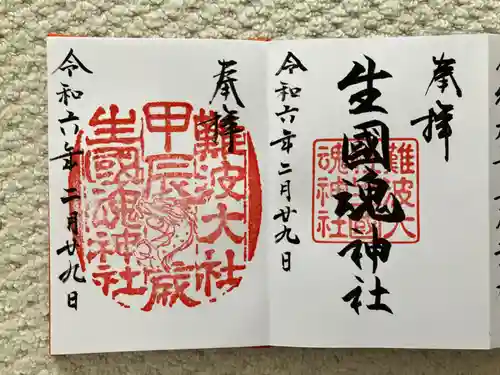 奉拝
難波大
社生國
魂神社
生國魂神社
令和六年二月廿九日
奉拝
難波大社
甲辰歳
生國魂神社
令和六年二月廿九日